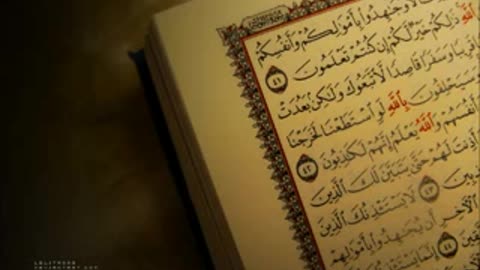 وَجَٰهِدُوا۟ بِأَمْوَٰلِكُمْ وَأَنفُسِكُمْ
ٱللَّهِ ذَٰلِكُمْ خَيْرٌ لَّكُمْ إِن كُنتُمْ تَعْلَمُونَ ٤١
قَرِيبًا وَسَفَرًا قَاصِدًا لَّٱتَّبَعُوكَ وَلَٰكِنۢ بَعُدَتْ
وَسَيَحْلِفُونَ بِٱللَّهِ لَوِ ٱسْتَطَعْنَا لَخَرَجْنَا
أَنفُسَهُمْ وَٱللَّهُ يَعْلَمُ إِنَّهُمْ لَكَٰذِبُونَ ٤٢
أَذِنتَ لَهُمْ حَتَّىٰ يَتَبَيَّنَ لَكَ ٱلَّذِينَ
ذِبِينَ ٤٣ لَا يَسْتَـْٔذِنُكَ ٱلَّذِينَ
ٱلْـَٔاخِرِ أَن يُجَٰهِدُوا۟ بِأَمْوَٰلِهِمْ
٤٤ إِنَّمَا